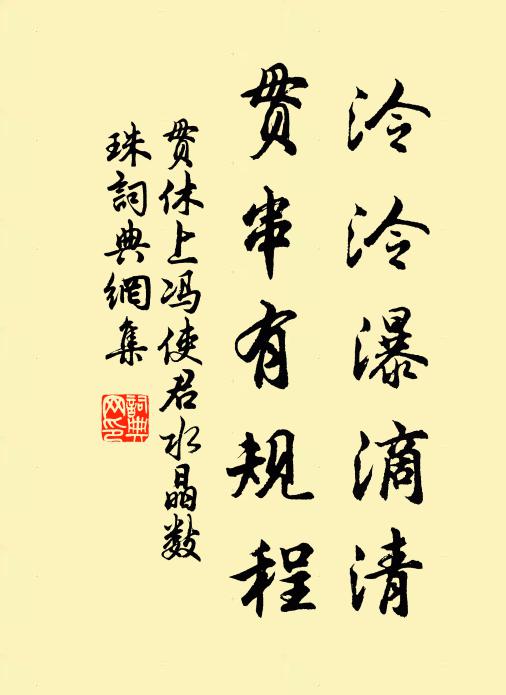 泠泠瀑滴清
贯串有规程
贯休上冯使君水晶数
珠詞典網集
詞典
网印